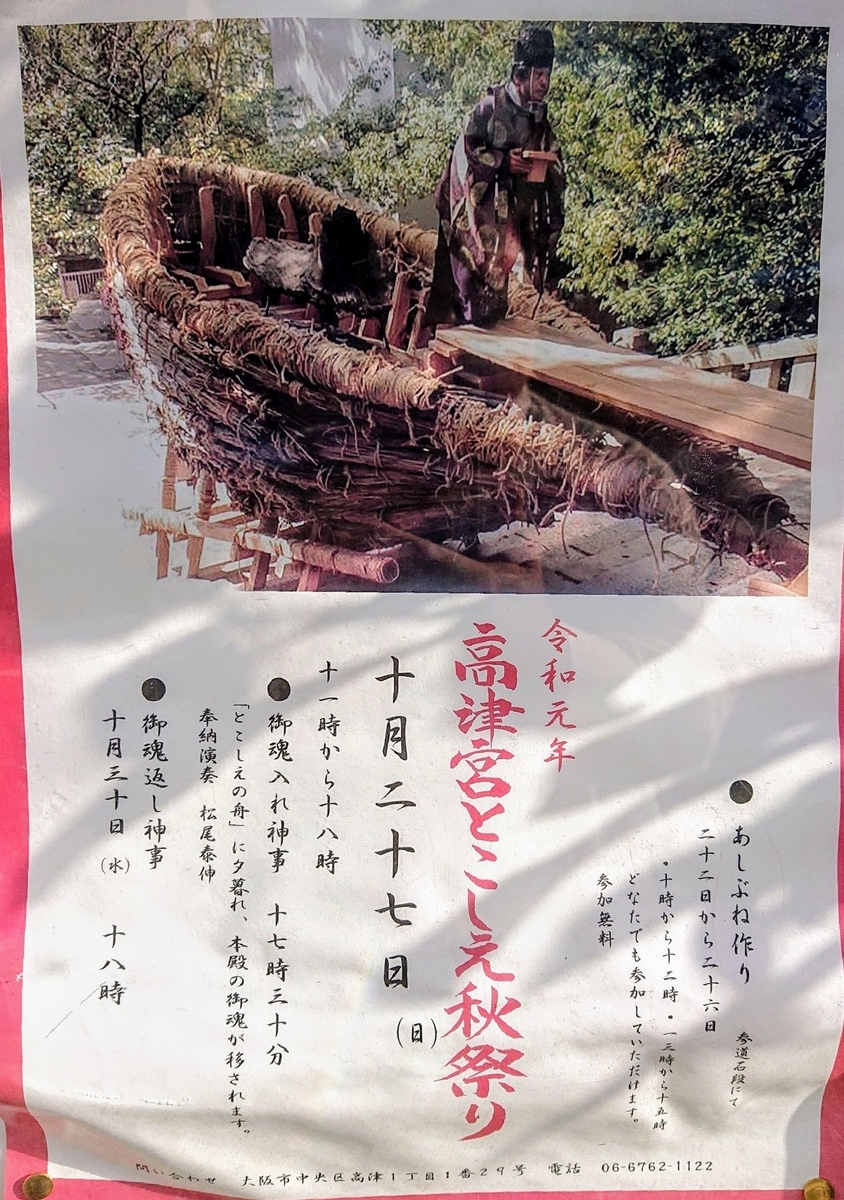 ●あしぶね作り 参道石段にて
二十二日から二十六日
・十時から十二時・一三時から十五時
どなたでも参加していただけます。
参加無料
令和元年
高津宮とこしえ秋祭り
十月二十七日(日)
十一時から十八時
●御魂入れ神事 十七時三十分
「とこしえの舟」に夕暮れ、本殿の御魂が移されます。
奉納演奏 松尾泰伸
●御魂返し神事
十月三十日(水) 十八時
問い合わせ 大阪市中央区高津1丁目1番29号 電話 06-6762-1122